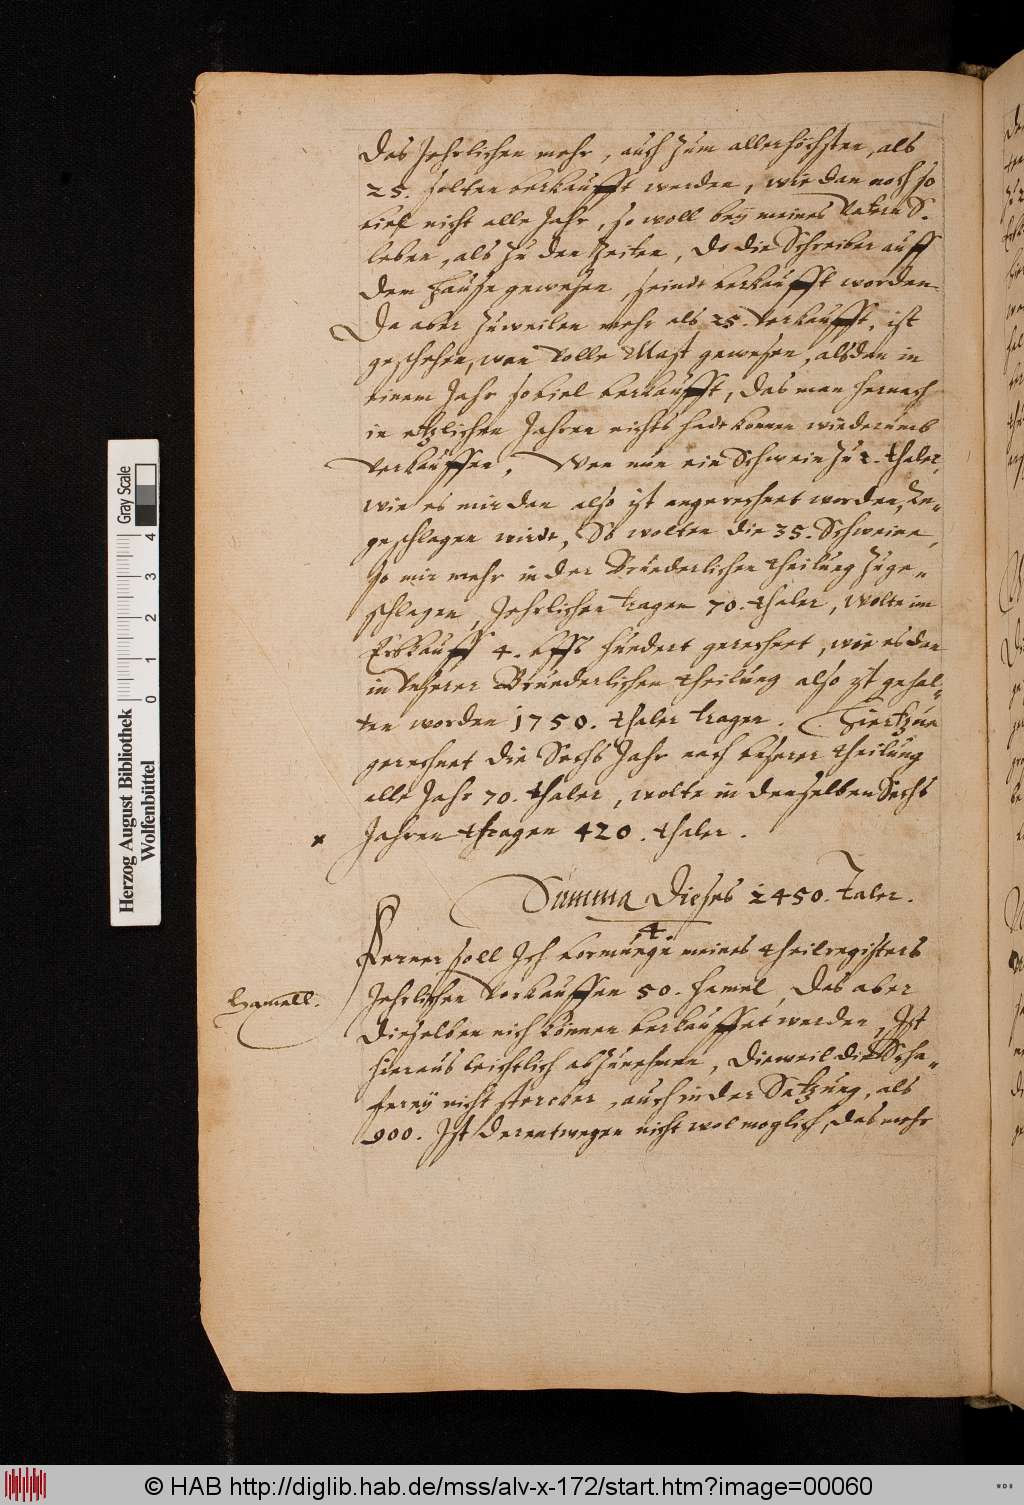 Das Jehrlichen mehr, auch zum allerhöchsten, als
25. solten verkaufft werden, wie dan noch so
viel nicht alle Jahr, so woll bey meines Vatern S.
leben, als zu den Zeiten, Do die Schreiber auff
dem Hause gewesen, seindt verkaufft worden
Da aber zuweilen mehr als 25. verkaufft, ist
geschehen, wan volle Mast gewesen, alsdan in
einem Jahr soviel verkaufft, das man hernach
in etzlichen Jahren nichts hadt konnen wiederumb
verkauffen, Wan nun ein Schwein zu 2. thaler,
wie es mir dan also ist angerechnet worden, An-
geschlagen wirdt, So wolten die 35. Schweine,
so mir mehr in der Bruederlichen theilung zuge-
schlagen, Jehrlichen tragen 70. thaler, wolte im
Erbkauff 4. auffs hundert gerechnet, wie es dan
in unserer Bruederlichen theilung also ist gehal-
ten worden 1750. thaler tragen. Hierzu
gerechnet die Sechs Jahr nach unserer theilung
alle Jahr 70. thaler, wolte in denselben Sechs
Jahren tragen 420. thaler.
Summa Dieses 2450. Taler.
4.
Ferner soll Ich vermuege meines theilregisters
Hamell.
Jehrlichen verkauffen 50. hamel, Das aber
dieselben nich können verkauffet werden, Ist
hieraus leichtlich abzunehmen, Dieweil die Sche-
ferey nicht stercker, auch in der Satzung, als
900. Ist derentwegen nicht wol moglich, das mehr
Herzog August Bibliothek
Wolfenbüttel
0 1 2 3 4
Gray Scale
© HAB http://diglib.hab.de/mss/alv-x-172/start.htm?image=00060